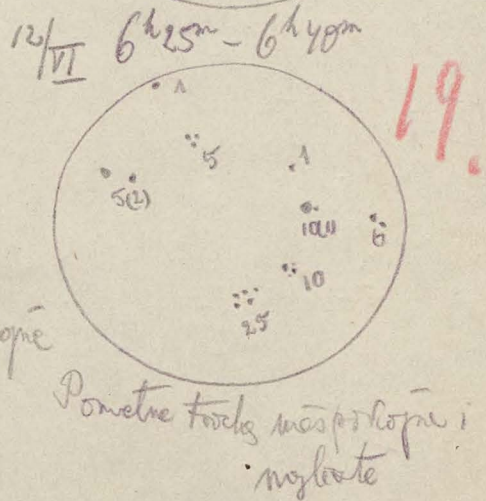 12/VI 6h25m – 6h40m
19.
1
5
1
5(2)
10(1)
6
10
25
Powietrze trochę niespokojne i
mgliste